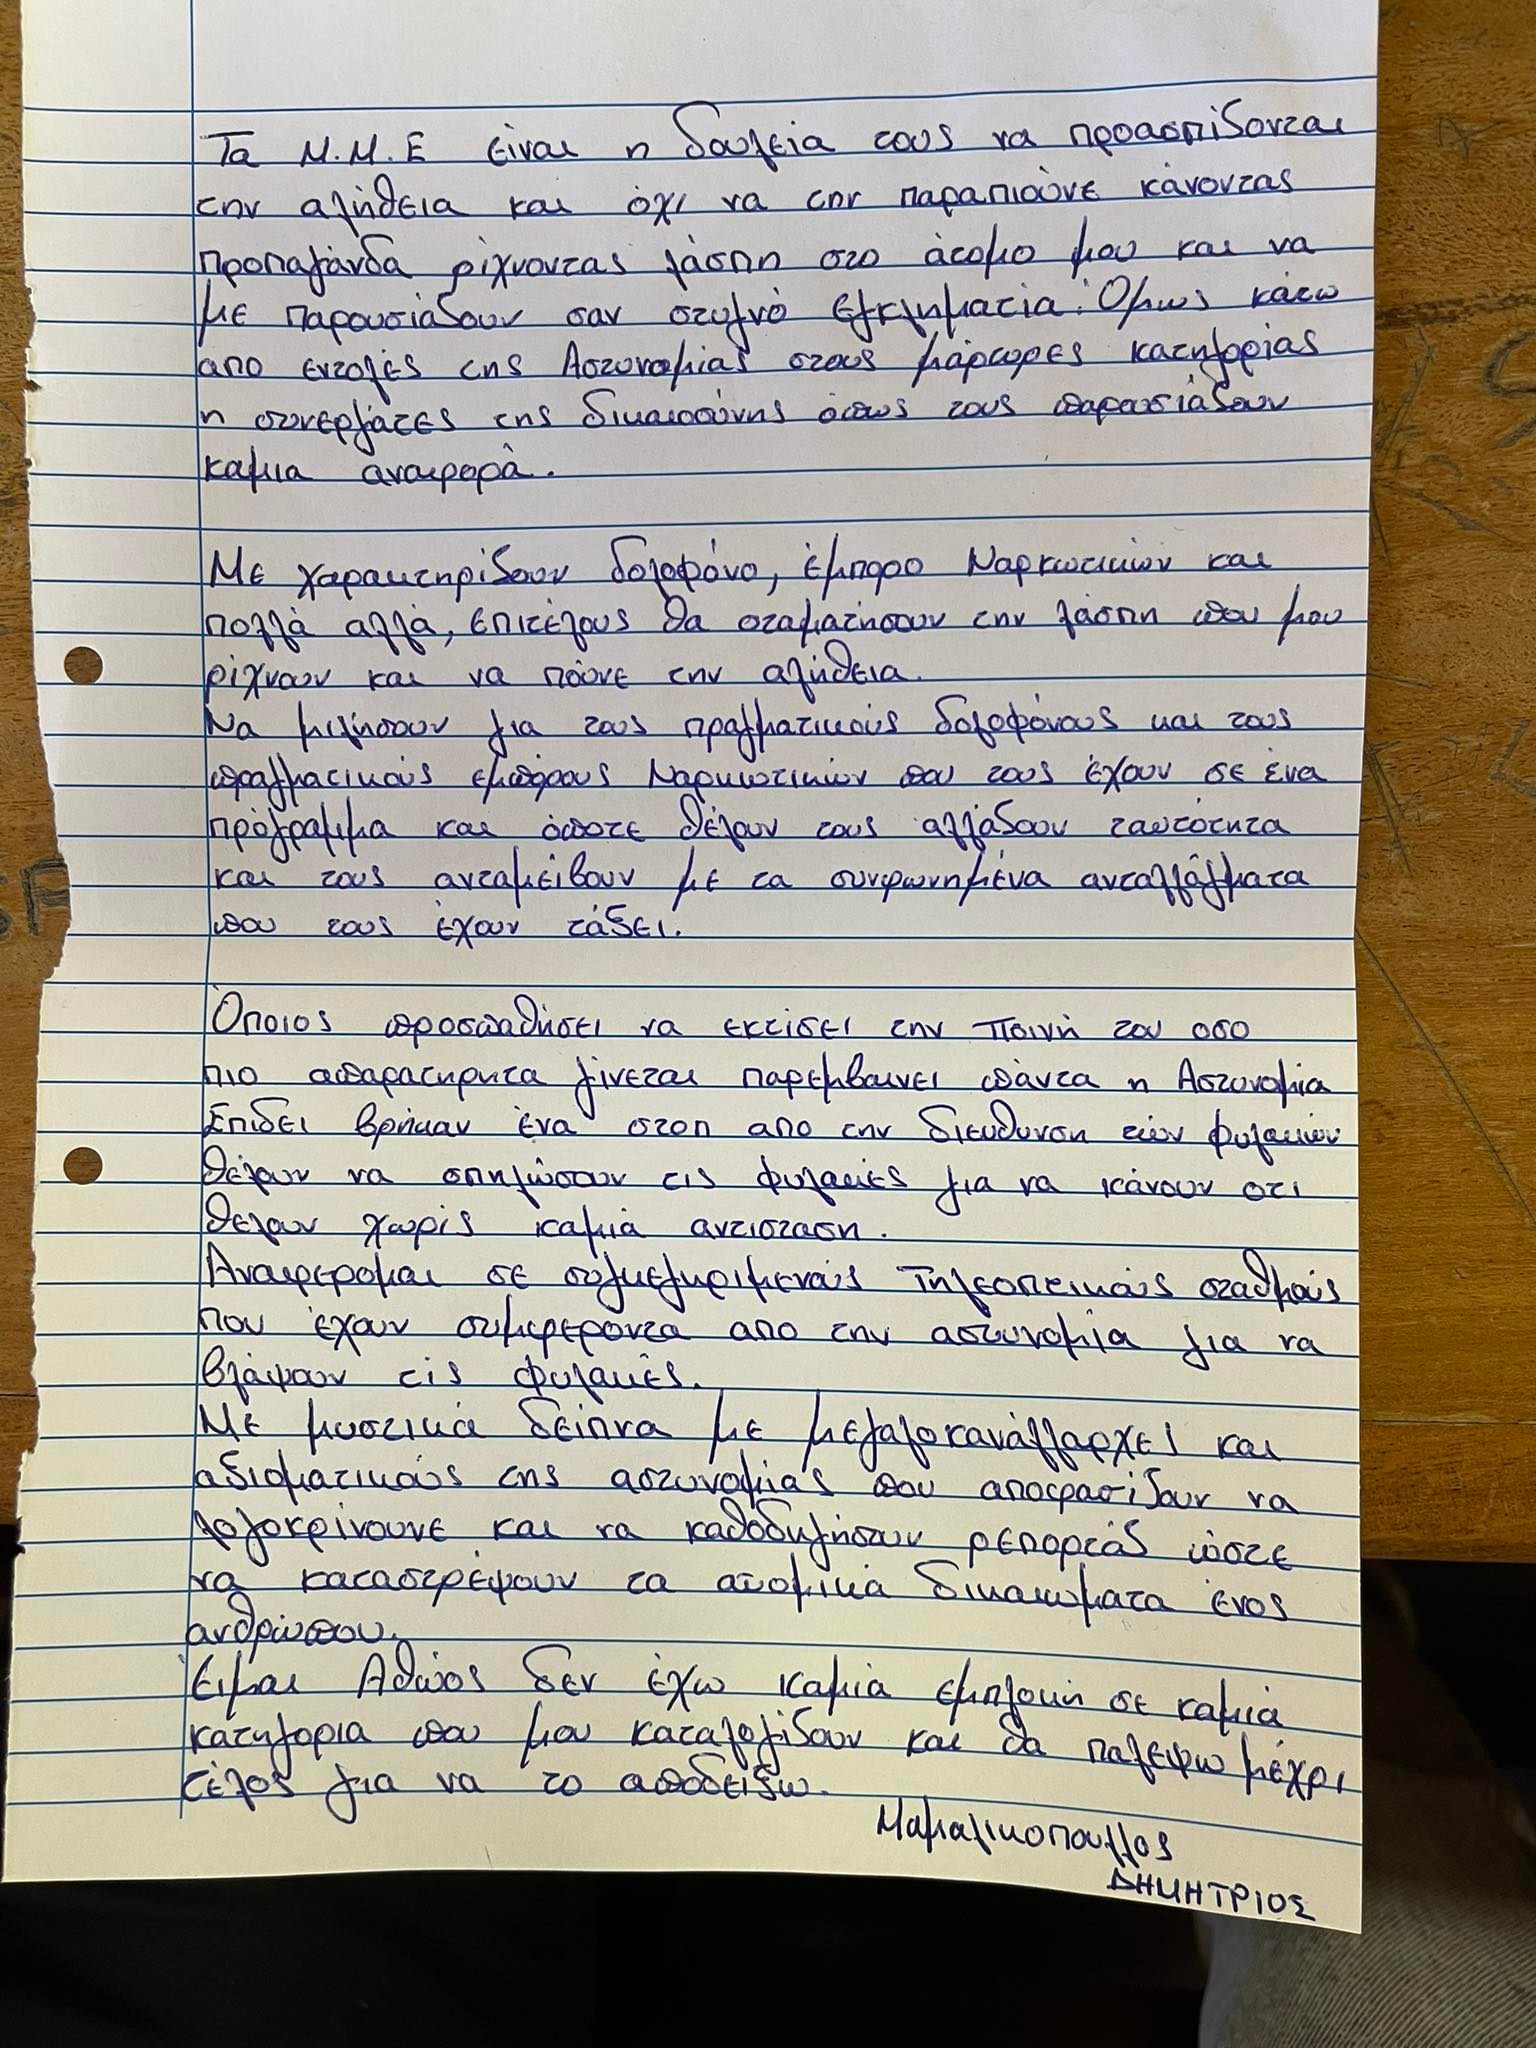 Τα Μ.Μ.Ε είναι η δουλεία τους να προασπίζονται
την αλήθεια και όχι να την παραπιούνε κάνοντας
προπαγάνδα ρίχνοντας λάσπη στο άτομο μου και να
με παρουσιάζουν σαν στυγνό εγκληματία. Όμως κάτω
απο εντολές της Αστυνομίας στους μάρτυρες κατηγορίας
η συνεργάτες της δικαιοσύνης όπως τους παρουσιάζουν
καμια αναφορά.
Με χαρακτηρίζουν δολοφόνο, έμπορο Ναρκωτικών και
πολλά αλλά, επιτέλους θα σταματήσουν την λάσπη που μου
ρίχνουν και να πούνε την αλήθεια.
Να μιλήσουν για τους πραγματικούς δολοφόνους και τους
πραγματικούς εμπόρους Ναρκωτικών που τους έχουν σε ένα
πρόγραμμα και όποτε θέλουν τους αλλάζουν ταυτότητα
και τους ανταμείβουν με τα συνφωνημένα ανταλλάγματα
που τους έχουν τάξει.
Όποιος προσπαθήσει να εκτίσει την ποινή του οσο
πιο απαρατηρητα γίνεται παρεμβαινει πάντα η Αστυνομία
Επιδει βρήκαν ένα στοπ απο την διευθυνση των φυλακών
θέλουν να σπηλώσουν τις φυλακές για να κάνουν οτι
θελουν χωρίς καμιά αντισταση.
Αναφερομαι σε συγκεγκριμενους Τηλεοπτικούς σταθμούς
που έχουν συμφεροντα απο την αστυνομία για να
βλάψουν τις φυλακές.
Με μυστικά δείπνα με μεγαλοκανάλλαρχει και
αξιοματικούς της αστυνομίας που αποφασίζουν να
λογοκρίνουνε και να καθοδηγήσουν ρεπορτάζ ώστε
να καταστρέψουν τα ατομικά δικαιωματα ένος
ανθρώπου.
Είμαι Αθώος δεν έχω καμιά εμπλοκή σε καμιά
κατηγορια που μου καταλογίζουν και θα παλεψω μέχρι
τέλος για να το αποδείξω.
Μαμαλικοπουλλος
ΔΗΜΗΤΡΙΟΣ